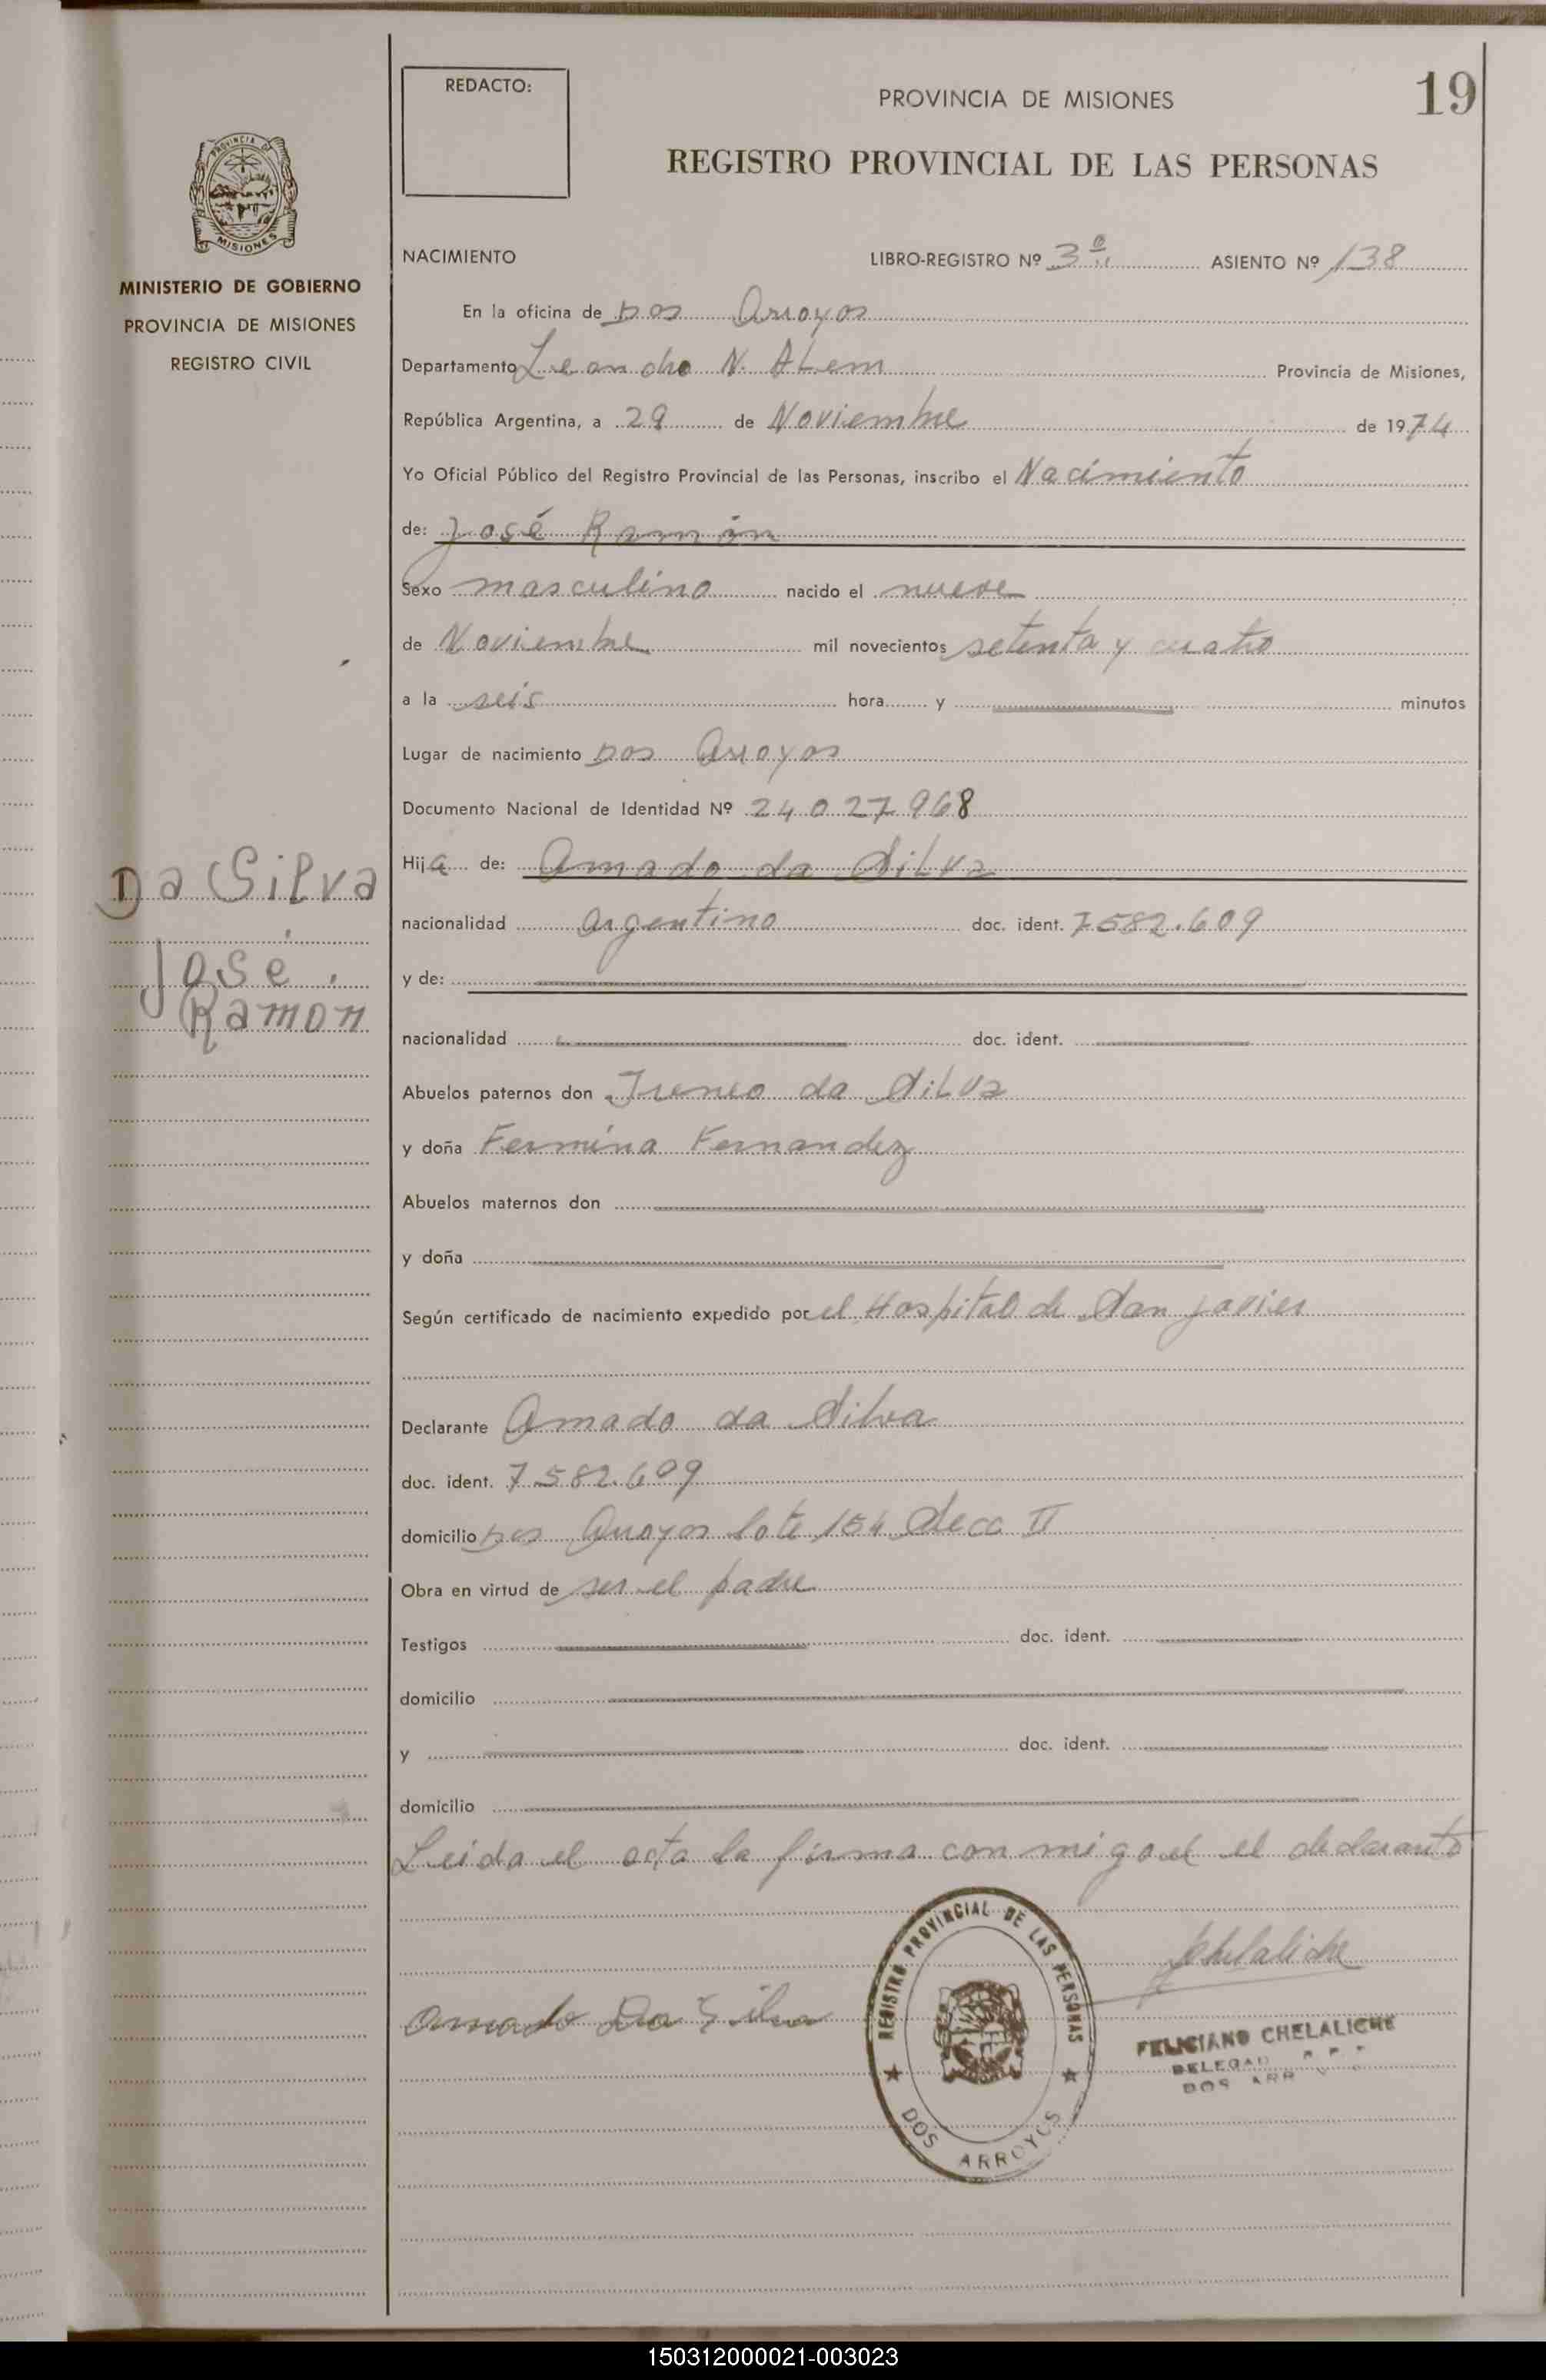 REDACTO:
PROVINCIA DE MISIONES
19
REGISTRO PROVINCIAL DE LAS PERSONAS
PROVINCIA DE
MISIONES
MINISTERIO DE GOBIERNO
PROVINCIA DE MISIONES
REGISTRO CIVIL
NACIMIENTO LIBRO-REGISTRO Nº 3º ASIENTO Nº 138
En la oficina de Dos Arroyos
Departamento Leandro N. ALem Provincia de Misiones,
República Argentina, a 29 de Noviembre de 1974
Yo Oficial Público del Registro Provincial de las Personas, inscribo el Nacimiento
de: José Ramón
Sexo masculino nacido el nueve
de Noviembre mil novecientos setenta y cuatro
a la seis hora y minutos
Lugar de nacimiento Dos Arroyos
Documento Nacional de Identidad Nº 24 027 968
Da Silva
José
Ramon
Hija de: Amado da SiLva
nacionalidad argentino doc. ident. 7582.609
y de:
nacionalidad doc. ident.
Abuelos paternos don Ireneo da SiLva
y doña Fermina Fernandez
Abuelos maternos don
y doña
Según certificado de nacimiento expedido por el Hospital de San Javier
Declarante Amado da Silva
doc. ident. 7582.609
domicilio Dos Arroyos lote 154 Secc II
Obra en virtud de ser el padre
Testigos doc. ident.
domicilio
y doc. ident.
domicilio
Leida el acta la firma con migo el declarante
Amado Da Silva
REGISTRO PROVINCIAL DE LAS PERSONAS
DOS ARROYOS
FChelaliche
FELICIANO CHELALICHE
DOS ARR
150312000021-003023